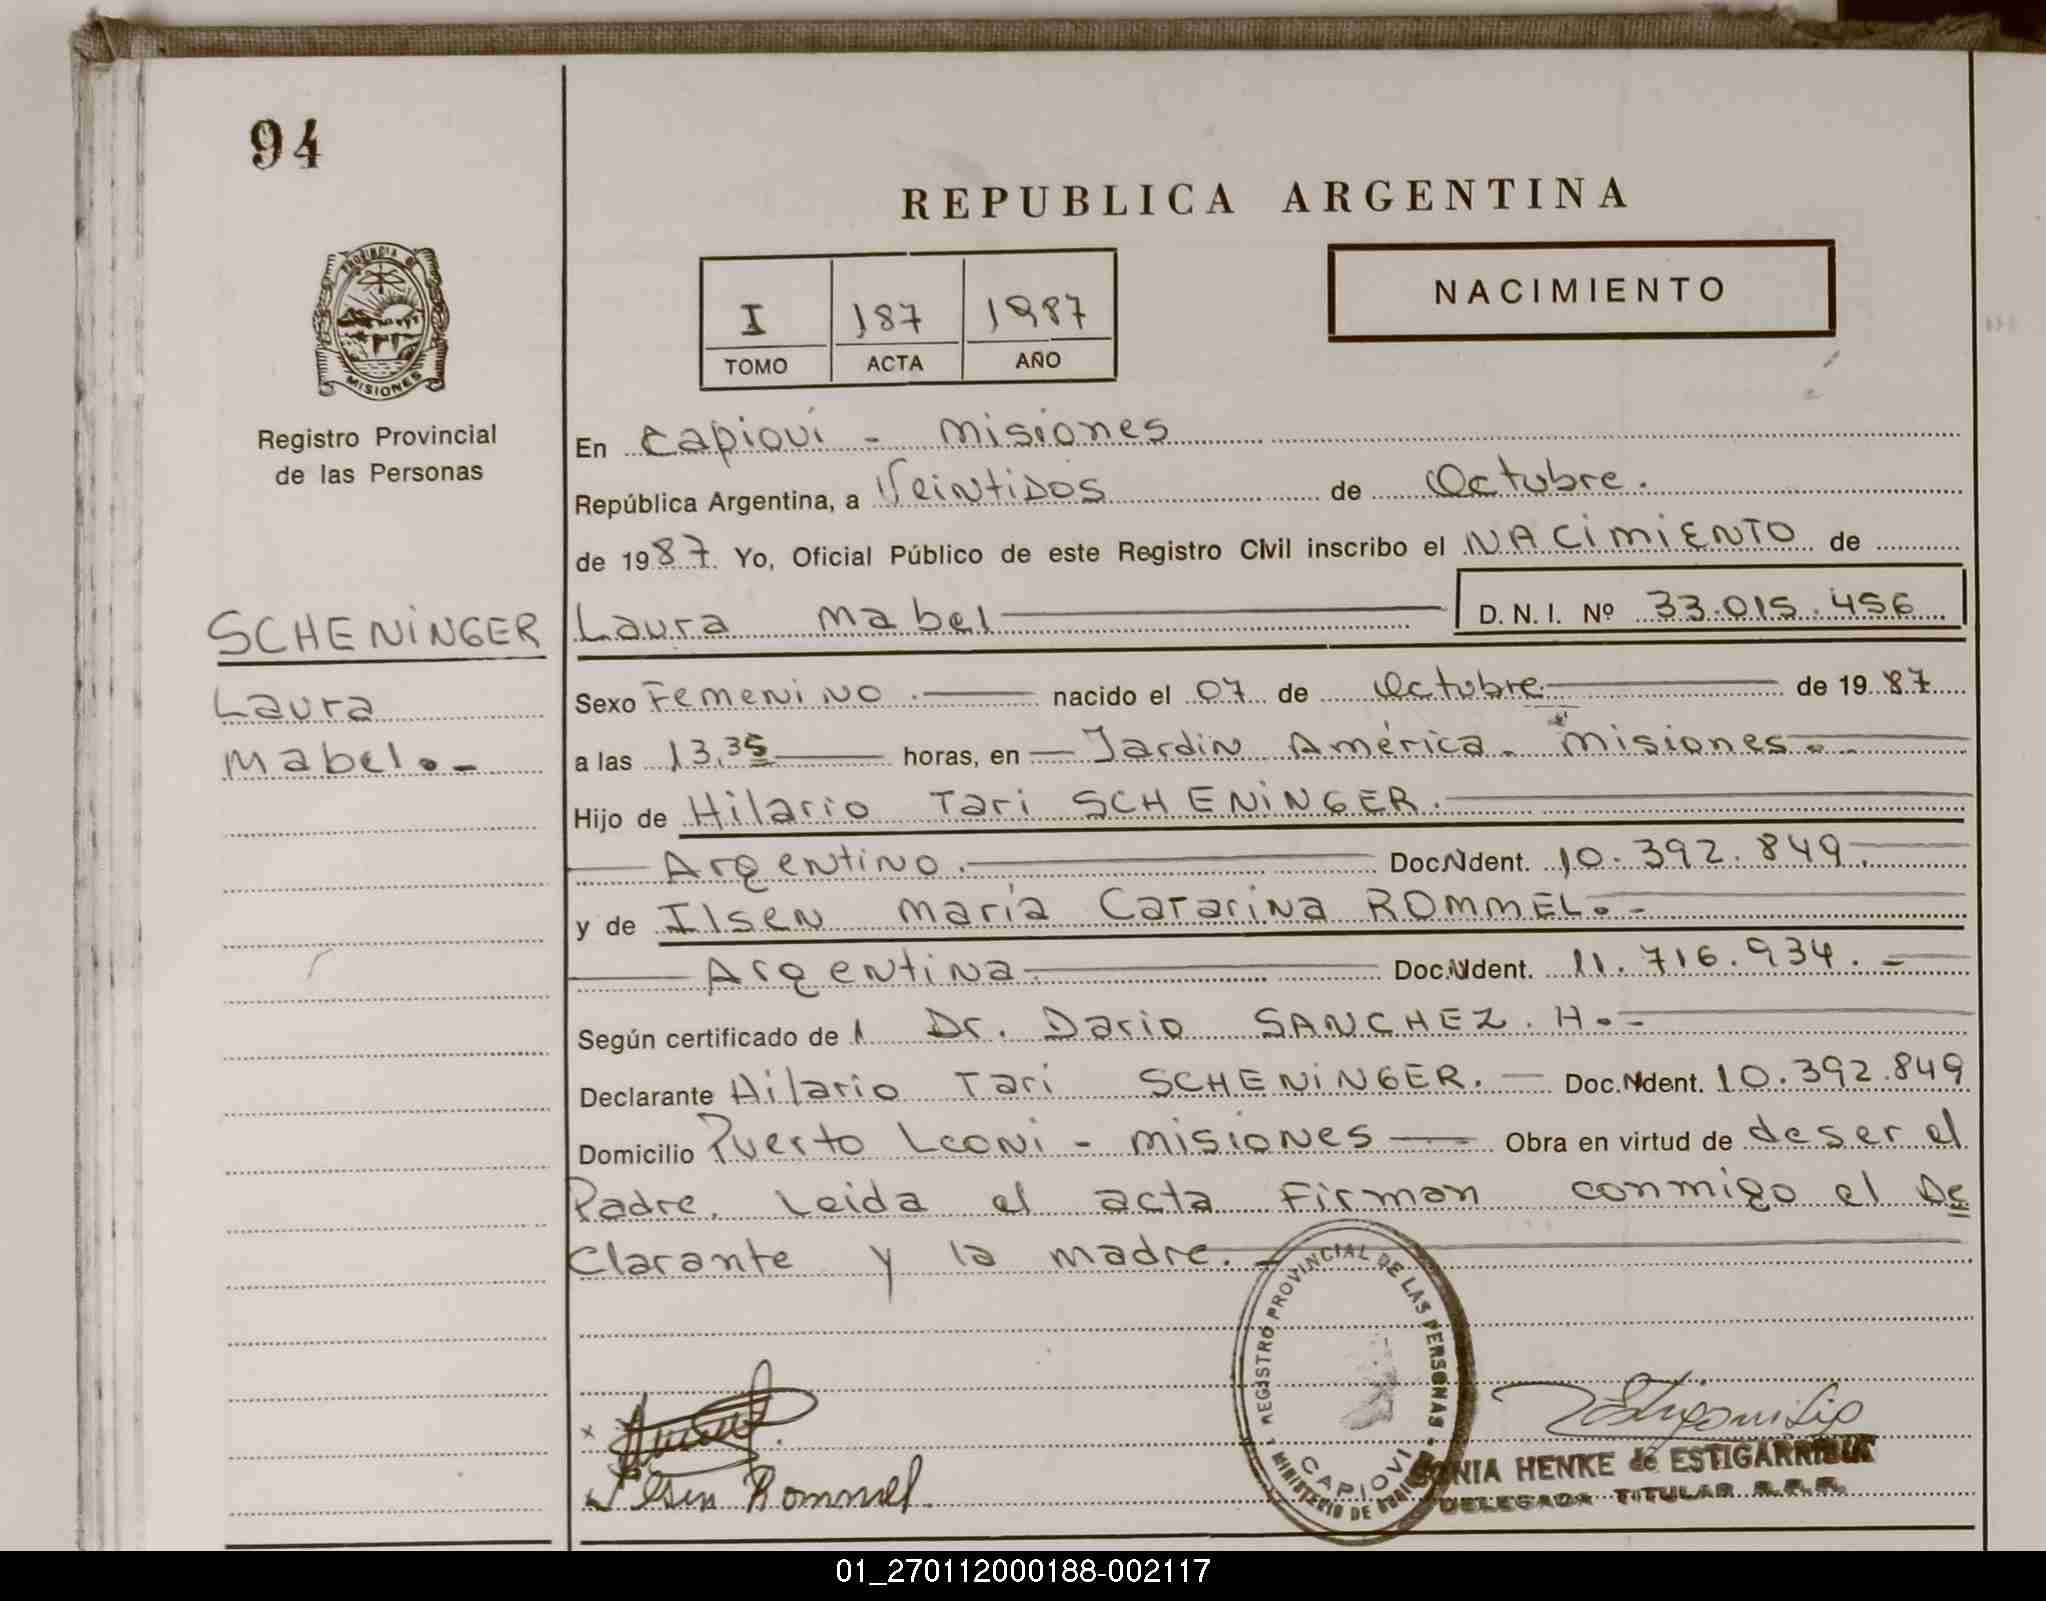 94
REPUBLICA ARGENTINA
PROVINCIA DE
MISIONES
Registro Provincial
de las Personas
I 187 1987
TOMO ACTA AÑO
NACIMIENTO
En Capioví - Misiones
República Argentina, a Veintidos de Octubre.
de 1987. Yo, Oficial Público de este Registro Civil inscribo el NACIMIENTO de
SCHENINGER
Laura
Mabel.-
Laura Mabel D. N. I. Nº 33.015.456
Sexo Femenino. nacido el 07 de Octubre de 1987
a las 13,35 horas, en Jardin América. Misiones.-
Hijo de Hilario Tari SCHENINGER.
Argentino. Doc. Ident. 10.392.849.
y de Ilsen María Catarina ROMMEL.-
Argentina. Doc. Ident. 11.716.934.-
Según certificado de l Dr. Dario SANCHEZ. H.-
Declarante Hilario Tari SCHENINGER. Doc. Ident. 10.392.849
Domicilio Puerto Leoni - Misiones Obra en virtud de de ser el
Padre. Leida el acta Firman conmigo el De
Clarante y la madre.-
REGISTRO PROVINCIAL DE LAS PERSONAS
CAPIOVI
MINISTERIO DE
Ilsen Rommel
SONIA HENKE de ESTIGARRIBIA
DELEGADA TITULAR R.P.P.
01_270112000188-002117